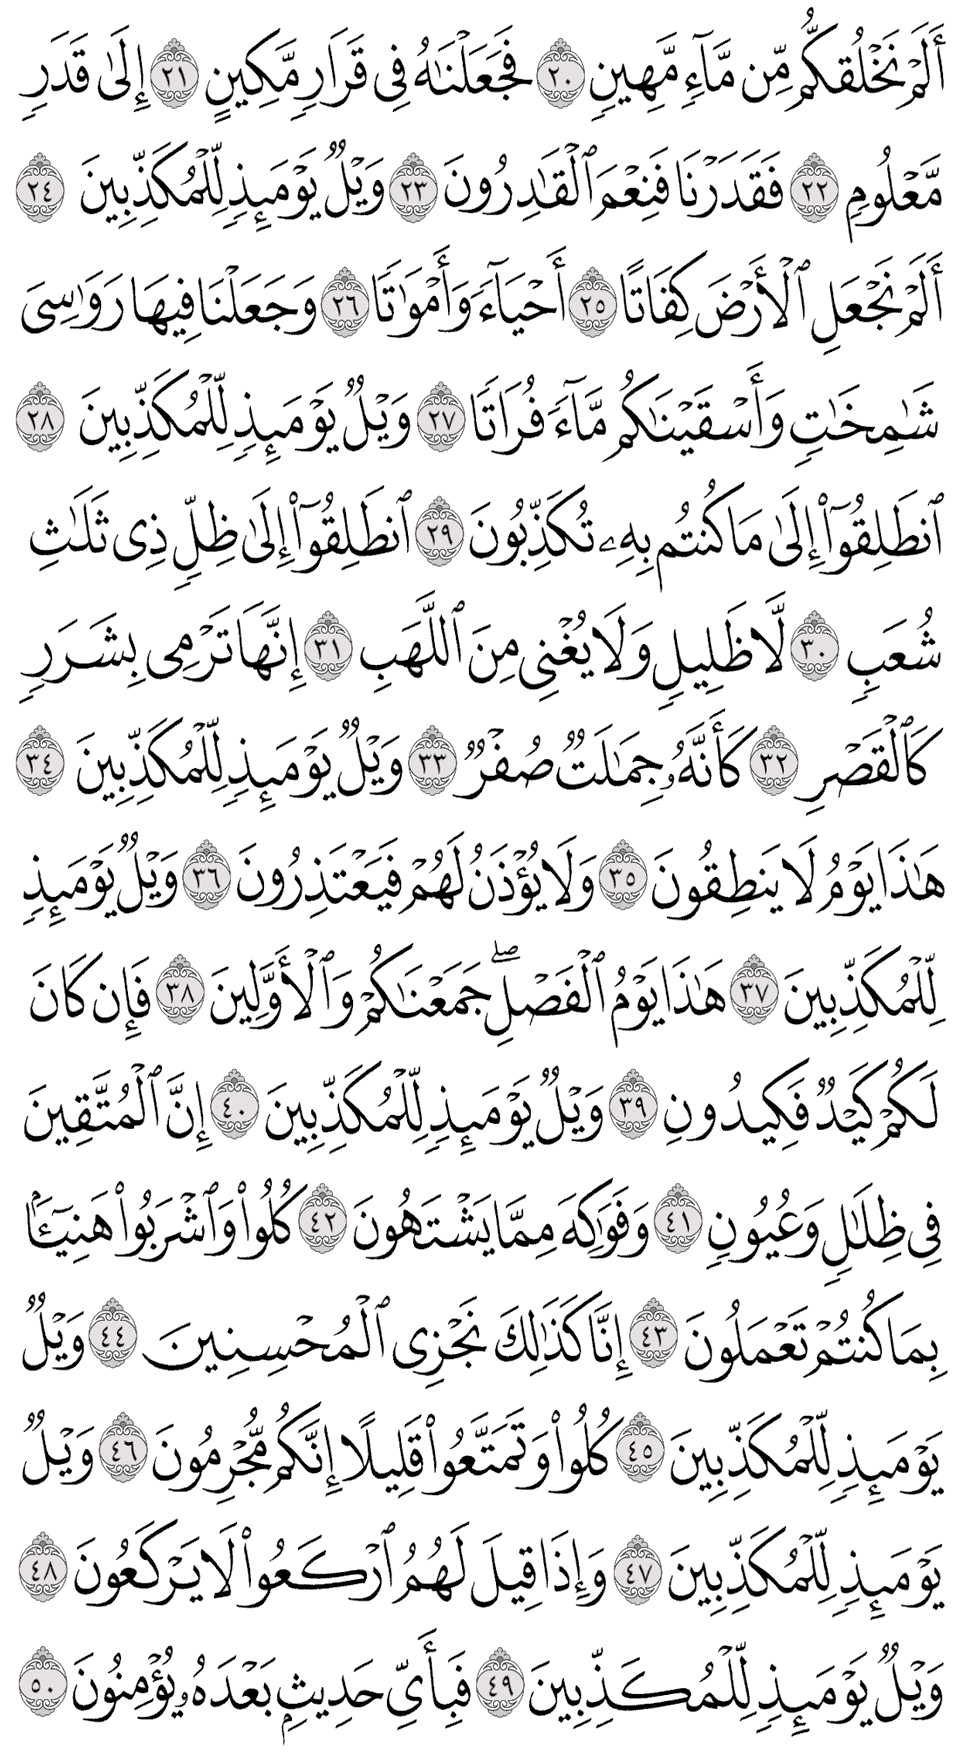 أَلَمۡ نَخۡلُقكُّم مِّن مَّآءٖ مَّهِينٖ ٢٠ فَجَعَلۡنَٰهُ فِي قَرَارٖ مَّكِينٍ ٢١ إِلَىٰ قَدَرٖ
مَّعۡلُومٖ ٢٢ فَقَدَرۡنَا فَنِعۡمَ ٱلۡقَٰدِرُونَ ٢٣ وَيۡلٞ يَوۡمَئِذٖ لِّلۡمُكَذِّبِينَ ٢٤
أَلَمۡ نَجۡعَلِ ٱلۡأَرۡضَ كِفَاتًا ٢٥ أَحۡيَآءٗ وَأَمۡوَٰتٗا ٢٦ وَجَعَلۡنَا فِيهَا رَوَٰسِيَ
شَٰمِخَٰتٖ وَأَسۡقَيۡنَٰكُم مَّآءٗ فُرَاتٗا ٢٧ وَيۡلٞ يَوۡمَئِذٖ لِّلۡمُكَذِّبِينَ ٢٨
ٱنطَلِقُوٓاْ إِلَىٰ مَا كُنتُم بِهِۦ تُكَذِّبُونَ ٢٩ ٱنطَلِقُوٓاْ إِلَىٰ ظِلّٖ ذِي ثَلَٰثِ
شُعَبٖ ٣٠ لَّا ظَلِيلٖ وَلَا يُغۡنِي مِنَ ٱللَّهَبِ ٣١ إِنَّهَا تَرۡمِي بِشَرَرٖ
كَٱلۡقَصۡرِ ٣٢ كَأَنَّهُۥ جِمَٰلَتٞ صُفۡرٞ ٣٣ وَيۡلٞ يَوۡمَئِذٖ لِّلۡمُكَذِّبِينَ ٣٤
هَٰذَا يَوۡمُ لَا يَنطِقُونَ ٣٥ وَلَا يُؤۡذَنُ لَهُمۡ فَيَعۡتَذِرُونَ ٣٦ وَيۡلٞ يَوۡمَئِذٖ
لِّلۡمُكَذِّبِينَ ٣٧ هَٰذَا يَوۡمُ ٱلۡفَصۡلِۖ جَمَعۡنَٰكُمۡ وَٱلۡأَوَّلِينَ ٣٨ فَإِن كَانَ
لَكُمۡ كَيۡدٞ فَكِيدُونِ ٣٩ وَيۡلٞ يَوۡمَئِذٖ لِّلۡمُكَذِّبِينَ ٤٠ إِنَّ ٱلۡمُتَّقِينَ
فِي ظِلَٰلٖ وَعُيُونٖ ٤١ وَفَوَٰكِهَ مِمَّا يَشۡتَهُونَ ٤٢ كُلُواْ وَٱشۡرَبُواْ هَنِيٓـَٔۢا
بِمَا كُنتُمۡ تَعۡمَلُونَ ٤٣ إِنَّا كَذَٰلِكَ نَجۡزِي ٱلۡمُحۡسِنِينَ ٤٤ وَيۡلٞ
يَوۡمَئِذٖ لِّلۡمُكَذِّبِينَ ٤٥ كُلُواْ وَتَمَتَّعُواْ قَلِيلًا إِنَّكُم مُّجۡرِمُونَ ٤٦ وَيۡلٞ
يَوۡمَئِذٖ لِّلۡمُكَذِّبِينَ ٤٧ وَإِذَا قِيلَ لَهُمُ ٱرۡكَعُواْ لَا يَرۡكَعُونَ ٤٨
وَيۡلٞ يَوۡمَئِذٖ لِّلۡمُكَذِّبِينَ ٤٩ فَبِأَيِّ حَدِيثِۭ بَعۡدَهُۥ يُؤۡمِنُونَ ٥٠